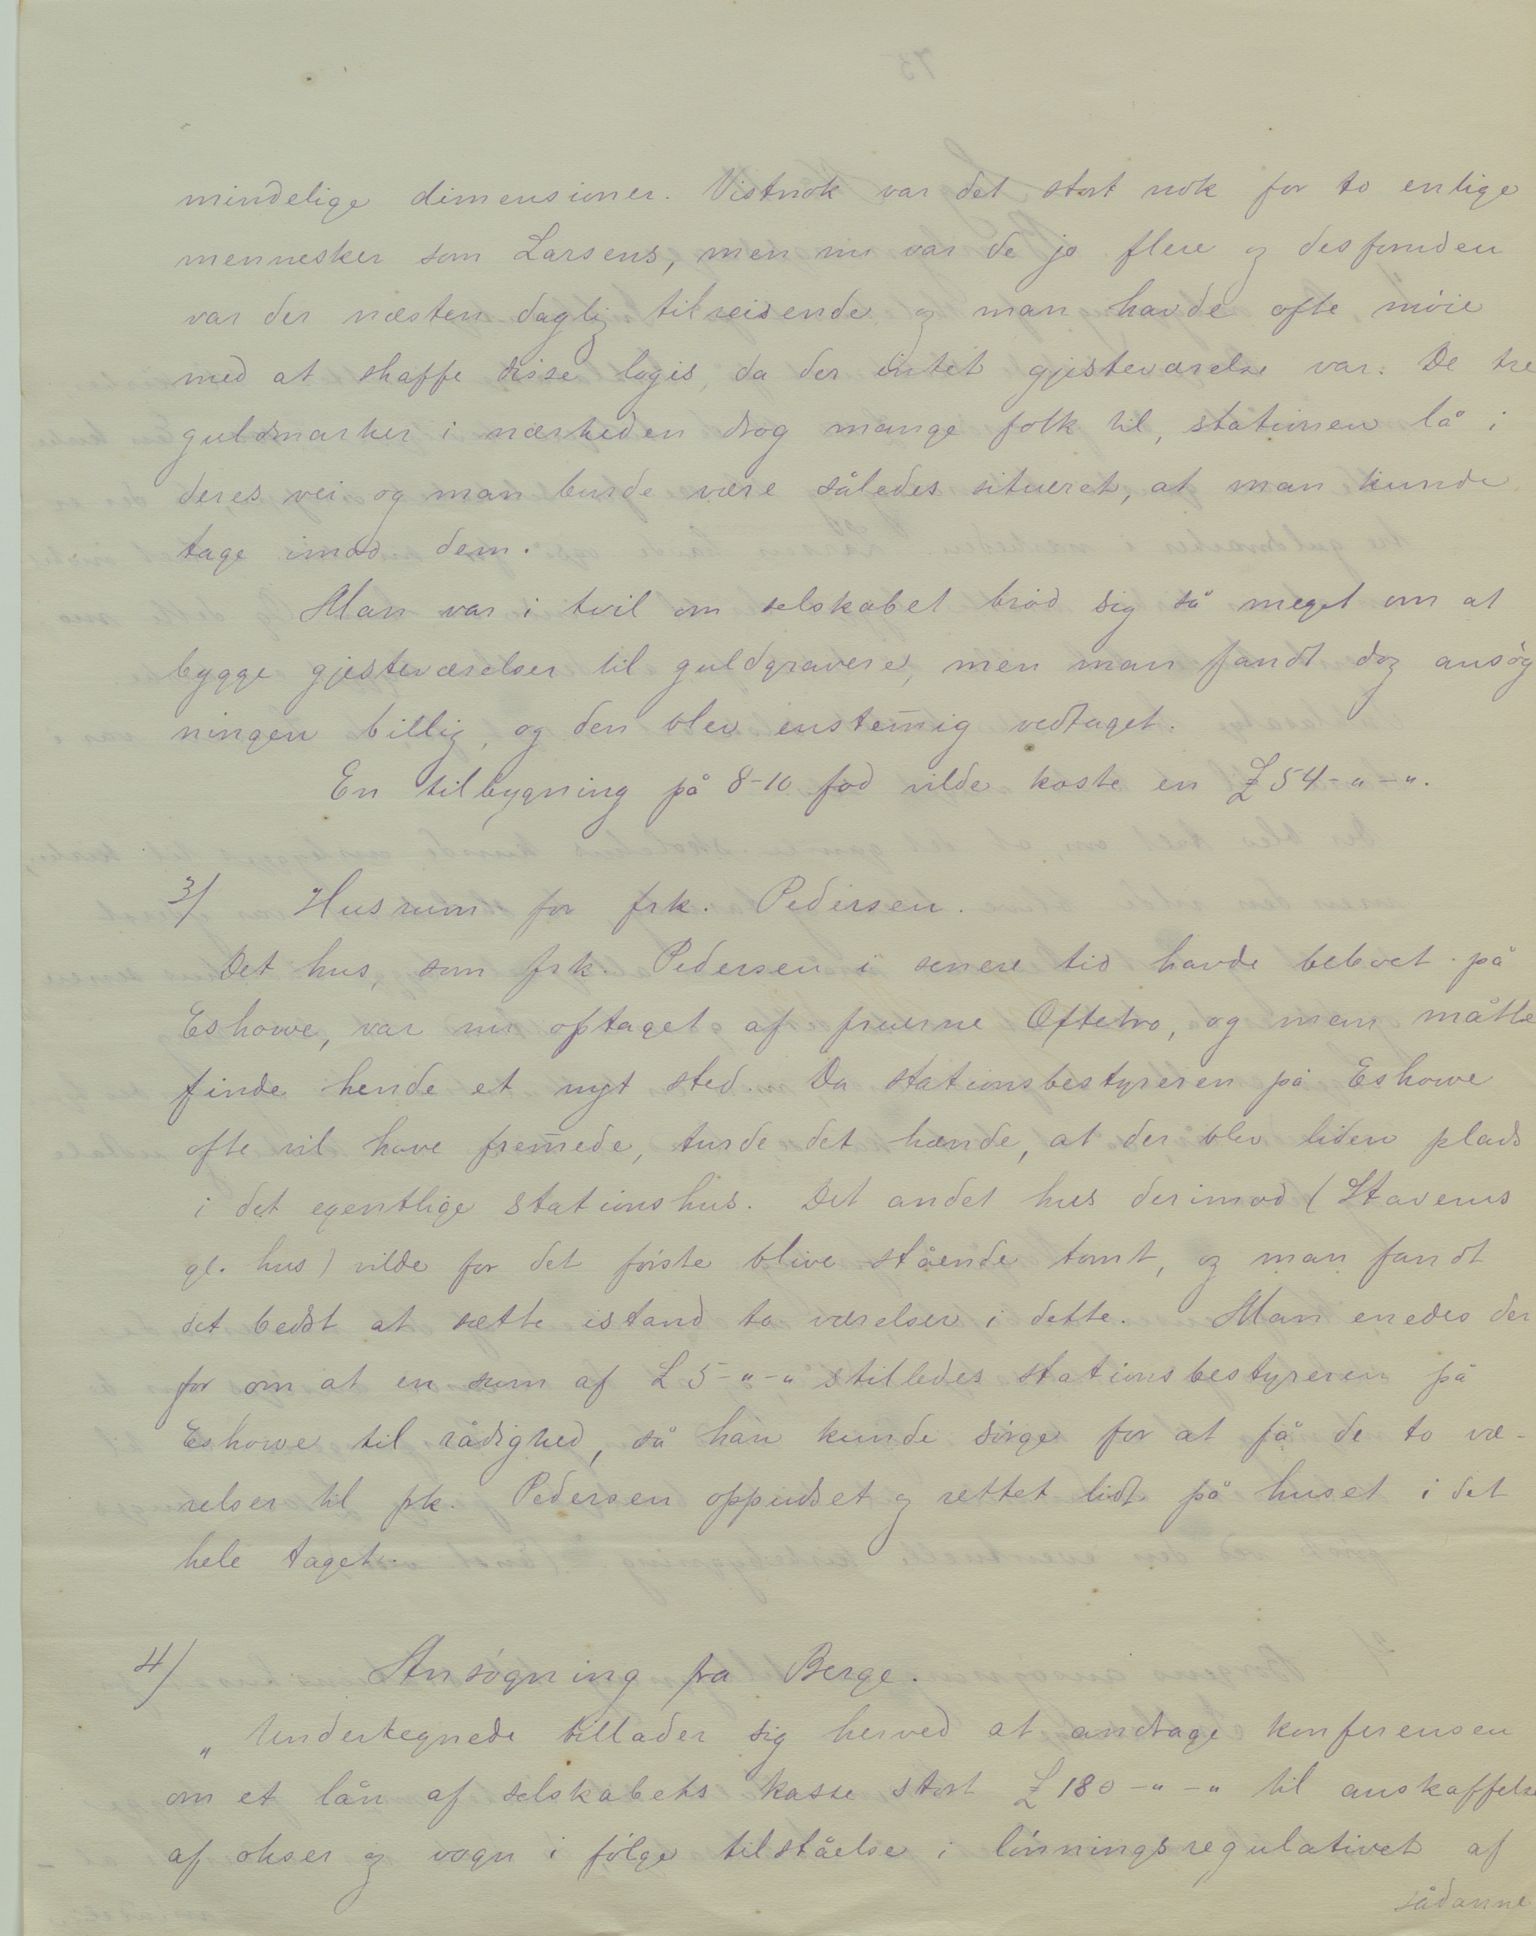 mindelige dimensioner. Vistnok var det stort nok for to enlige
mennesker som Larsens, men nu var de jo flere og desforuden
var der næsten daglig tilreisende og man havde ofte møie
med at skaffe disse logis, da der intet gjesteværelse var. De tre
guldmarker i nærheden drog mange folk til, stationen lå i
deres vei og man burde være således situeret, at man kunde
tage imod dem.
Man var i tvil om selskabet brød sig så meget om at
bygge gjesteværelser til guldgravere, men man fandt dog ansøg
ningen billig, og den blev enstem̄ig vedtaget.
En tilbygning på 8-10 fod vilde koste en £ 54-"-".
3/ Husrum for frk. Pedersen.
Det hus, som frk. Pedersen i senere tid havde beboet på
Eshowe, var nu optaget af fruerne Oftebro, og man måtte
finde hende et nyt sted. Da stationsbestyreren på Eshowe
ofte vil have frem̄ede, turde det hænde, at der blev liden plads
i det egentlige stationshus. Det andet hus derimod (Stavems
gl. hus) vilde for det første blive stående tomt, og man fandt
det bedst at sætte istand to værelser i dette. Man enedes der
for om at en sum af £ 5-"-" stilledes stationsbestyreren på
Eshowe til rådighed, så han kunde sørge for at få de to væ-
relser til frk. Pedersen oppudset og rettet lidt på huset i det
hele taget.
4/ Ansøgning fra Berge.
„Undertegnede tillader sig herved at andrage konferensen
om et lån af selskabets kasse stort £ 180-"-" til anskaffelse
af okser og vogn i følge tilståelse i lønningsregulativet af
sådanne